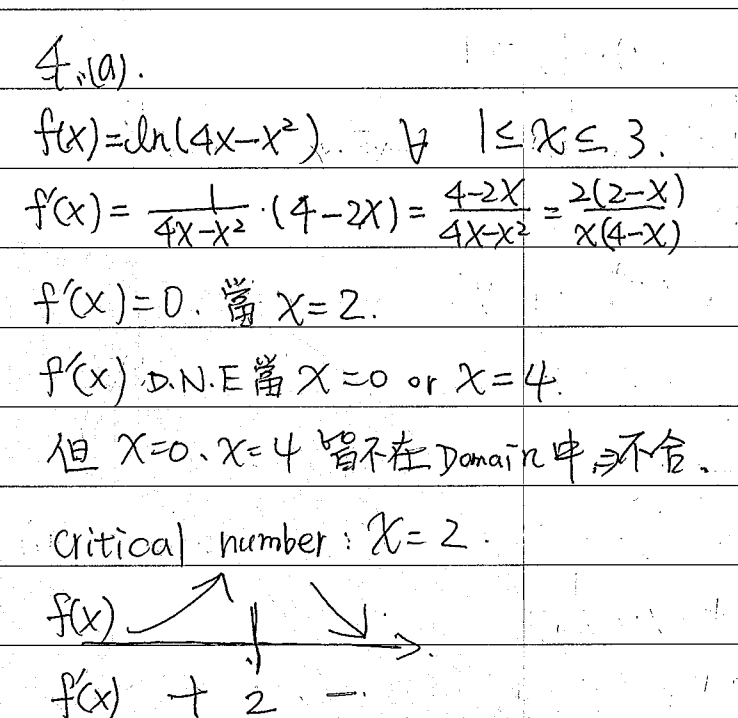 4.(a).
f(x)=ln(4x-x²). ∀ 1≤x≤3.
f'(x)= 1/(4x-x²) · (4-2x) = (4-2x)/(4x-x²) = 2(2-x)/(x(4-x))
f'(x)=0. 當 x=2.
f'(x) D.N.E 當 x=0 or x=4.
但 x=0、x=4 皆不在 Domain 中⇒不合.
critical number: x=2.
f(x)
f'(x) + 2 -